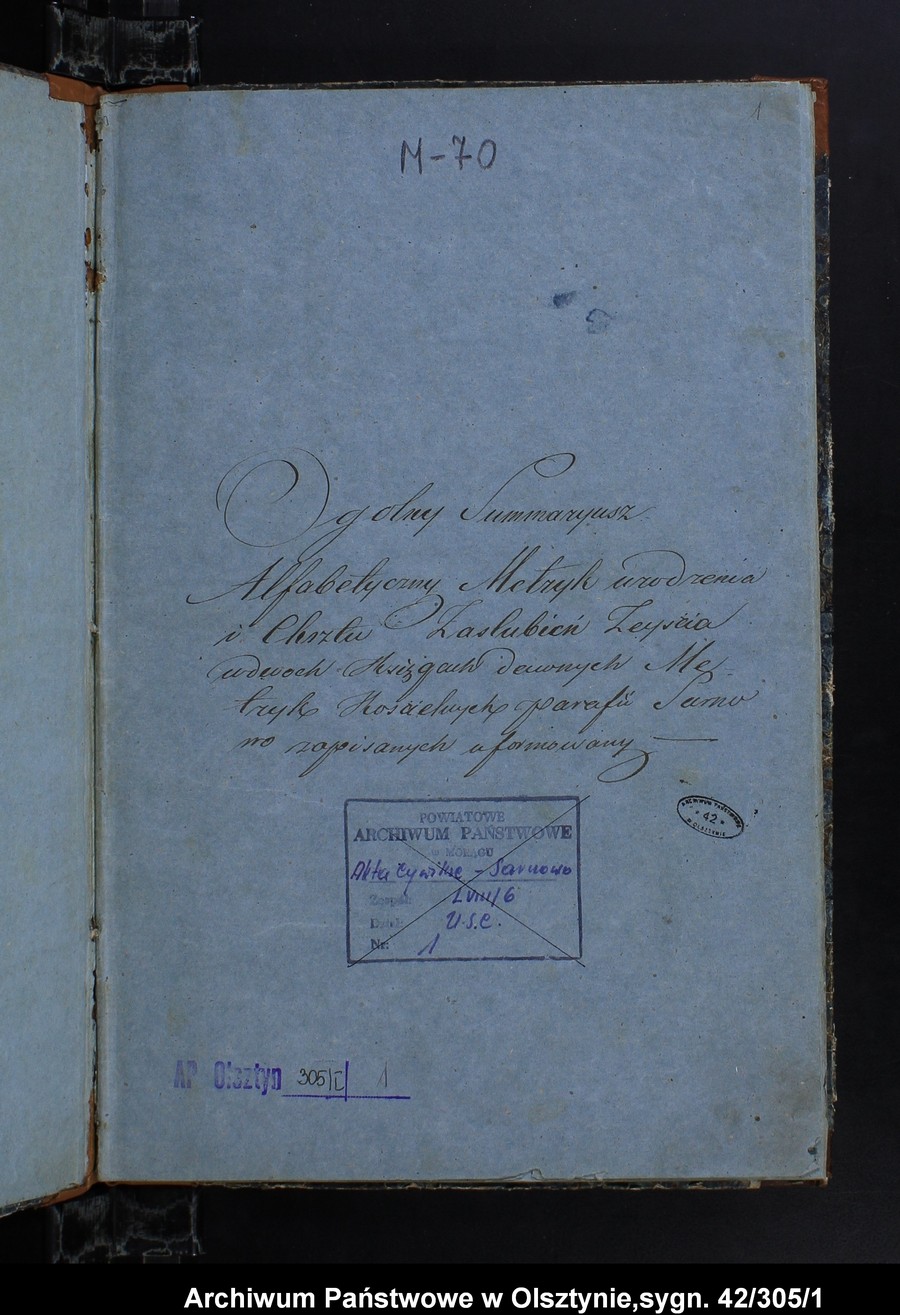 1
M-70
Ogolny Summaryusz
Alfabetyczny Metryk urodzenia
i Chrztu Zaslubień Zeyścia
w dwoch Księgach dawnych Me-
tryk Kościelnych parafii Sarno
wo zapisanych uformowany
ARCHIWUM PAŃSTWOWE
* 42 *
W OLSZTYNIE
POWIATOWE
ARCHIWUM PAŃSTWOWE
w MORĄGU
Akta Cywilne - Sarnowo
Zespół: LVIII/6
Dział: U.S.C.
Nr: 1
AP Olsztyn 305/I/ 1
Archiwum Państwowe w Olsztynie,sygn. 42/305/1